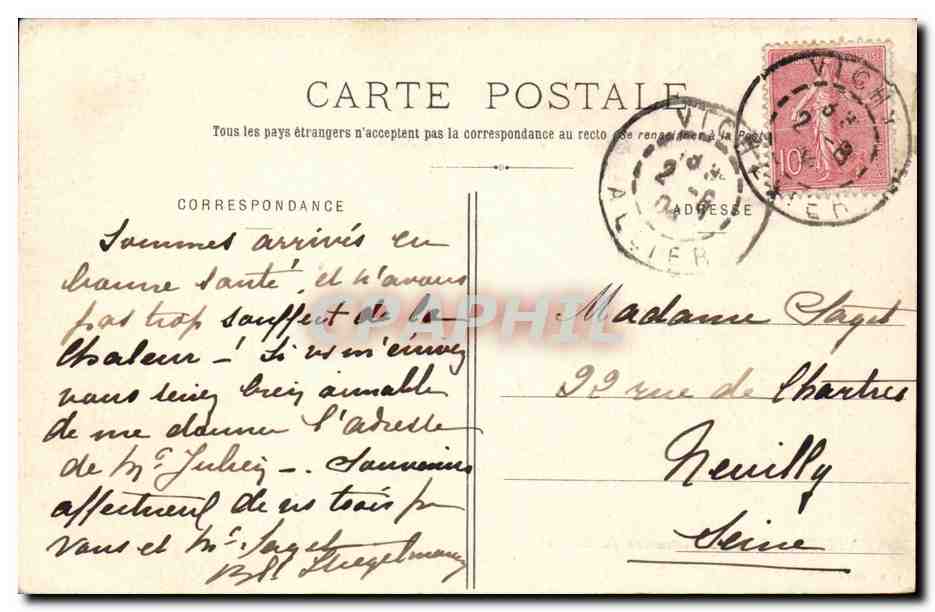 CARTE POSTALE
Tous les pays étrangers n'acceptent pas la correspondance au recto (Se renseigner à la Poste
CORRESPONDANCE
ADRESSE
VICHY
ALLIER
VICHY
ALLIER
10
Sommes arrivés en
bonne santé, et n'avons
pas trop souffert de la
Chaleur –! Si vs m'écrivez
vous seriez bien aimable
de me donner l'adresse
de Mr Julien –. Souvenirs
affectueux de ns trois pr
Vous et Mr Saget
Madame Saget
22 rue de Chartres
Neuilly
Seine
CPAPHIL